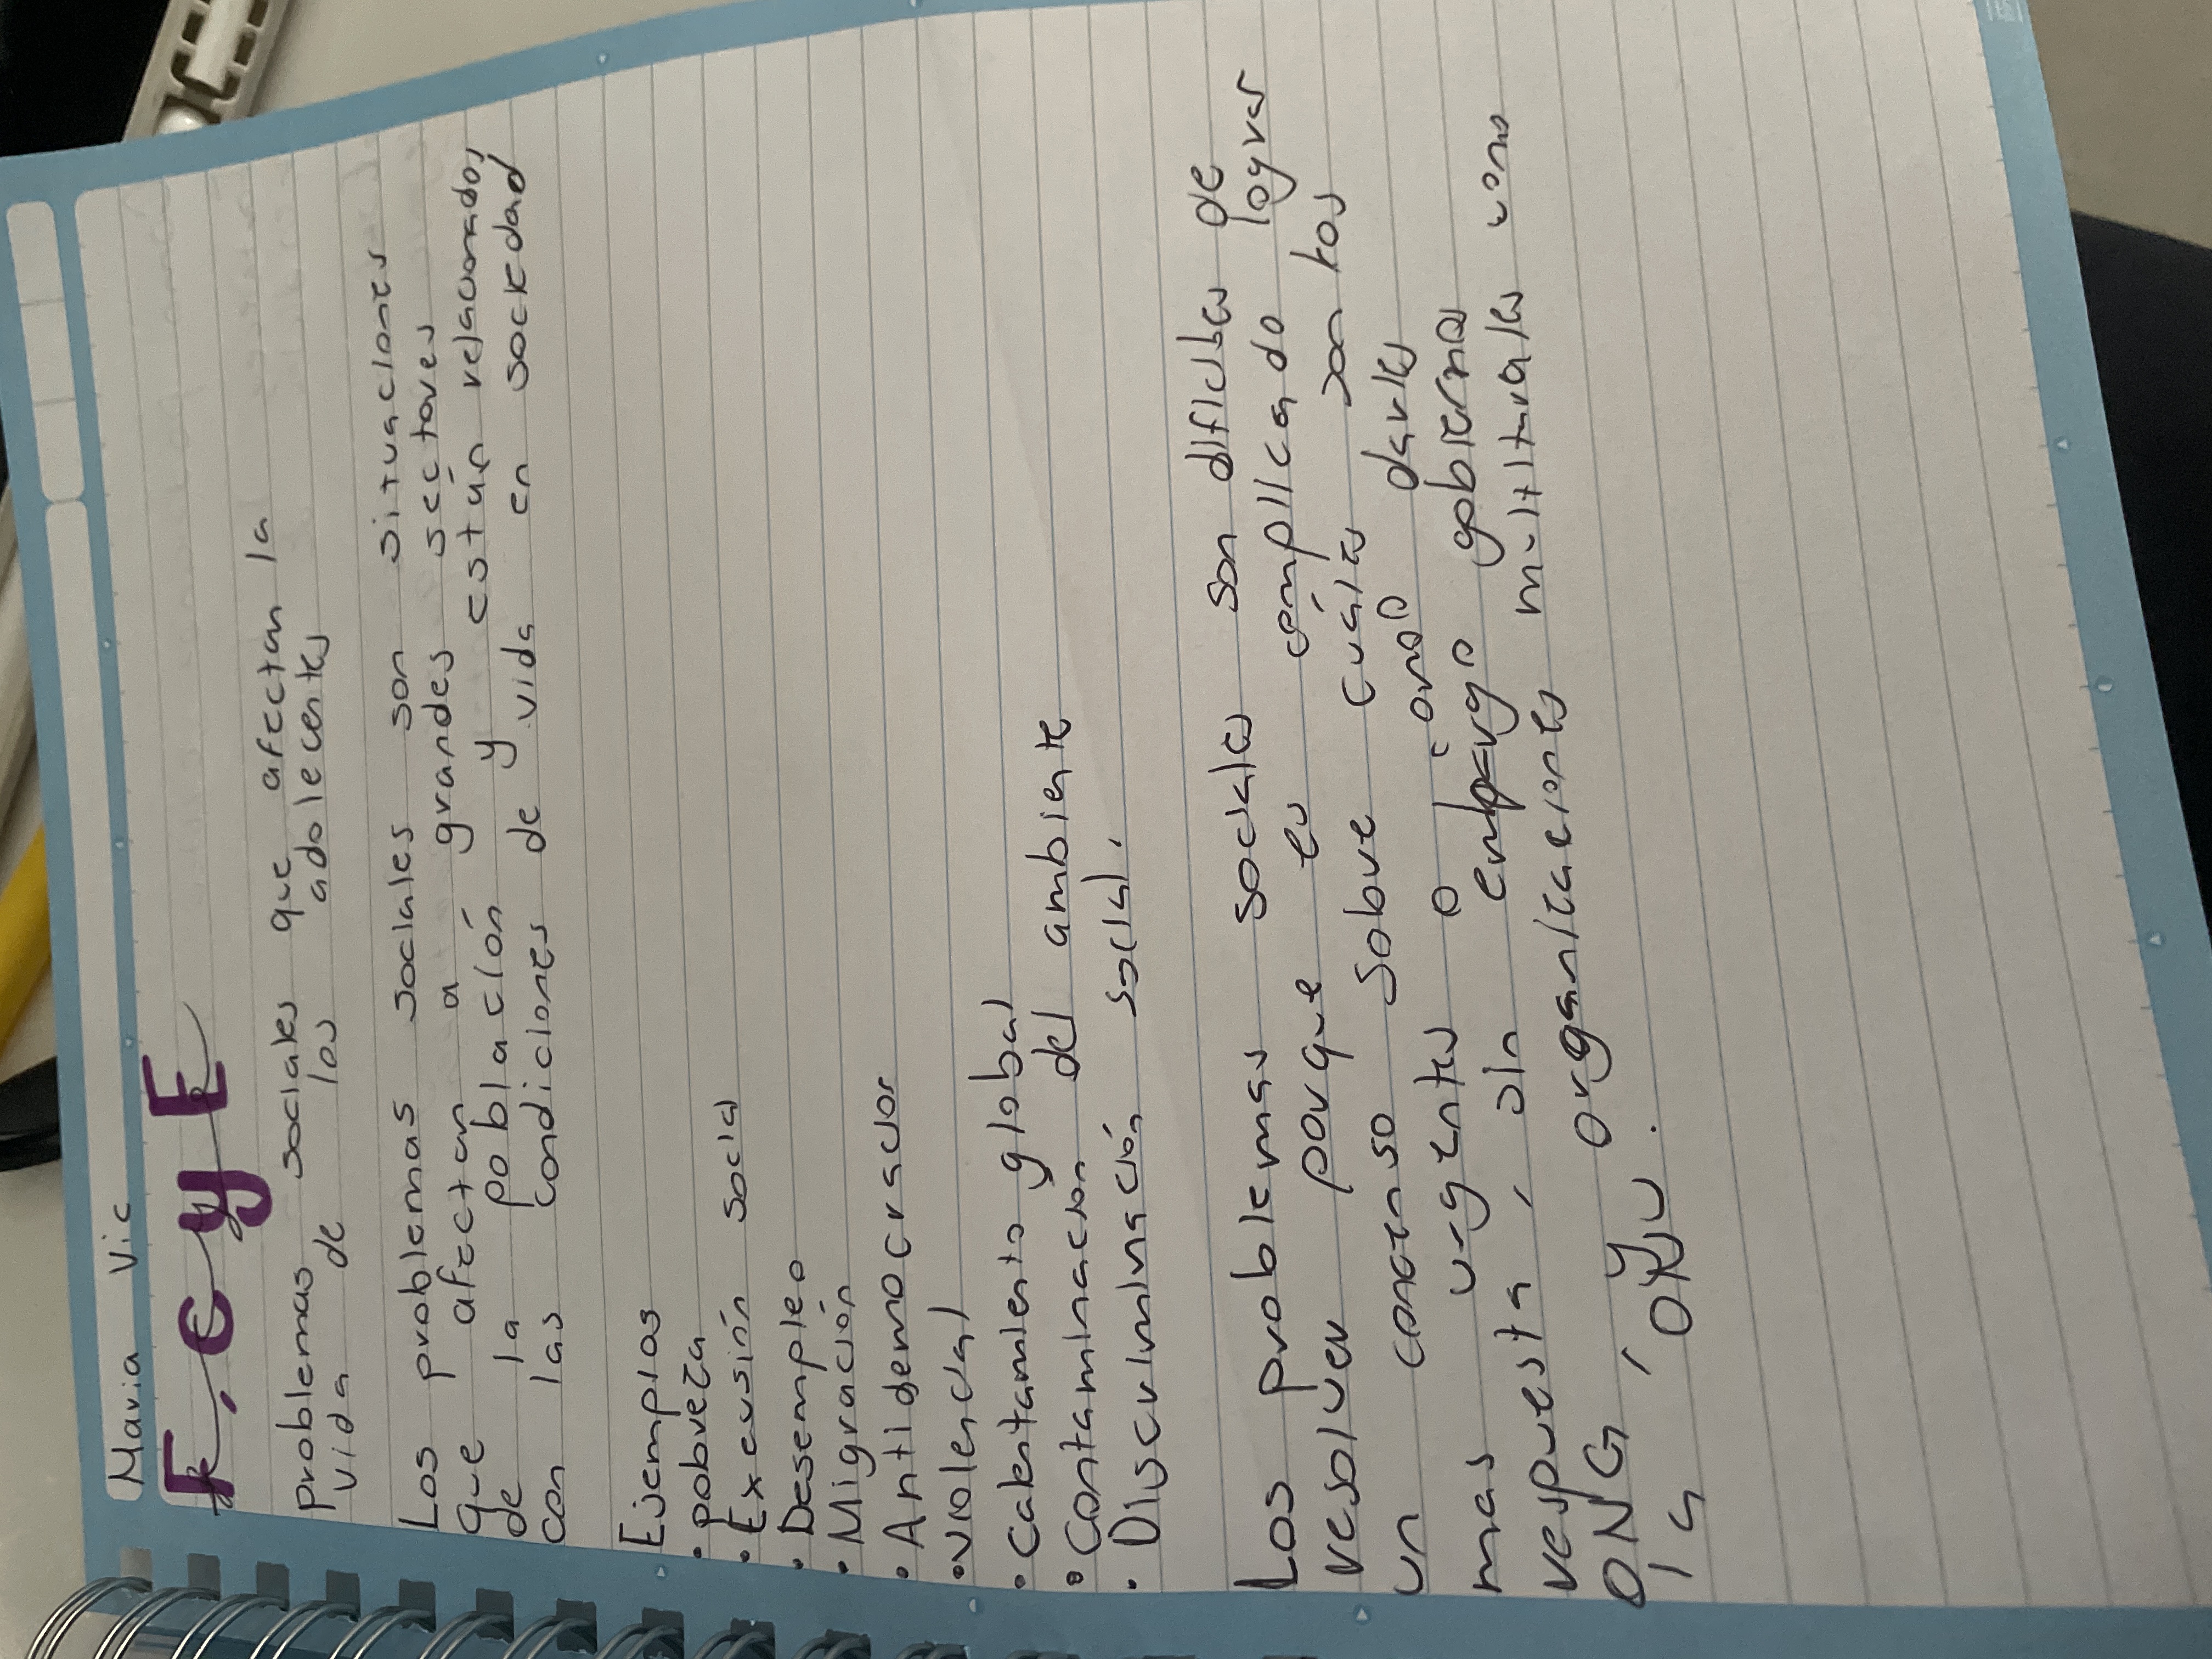 Maria Vic
F, C y E
problemas sociales que afectan la
vida de los adolecentes
Los problemas sociales son situaciones
que afectan a grandes sectores
de la población y están relacionados
con las condiciones de vida en sociedad
Ejemplos
• pobreza
• Excusión social
• Desempleo
• Migración
• Antidemocracias
• violencia
• Calentamiento global
• Contaminacion del ambiente
• Discriminación social.
Los problemas sociales son dificiles de
resolver porque es complicado lograr
un concenso sobre cuáles son los
mas urgentes o cómo darles
respuesta, sin embargo gobiernos
ONG, organizaciones multilaterales como
la ONU.